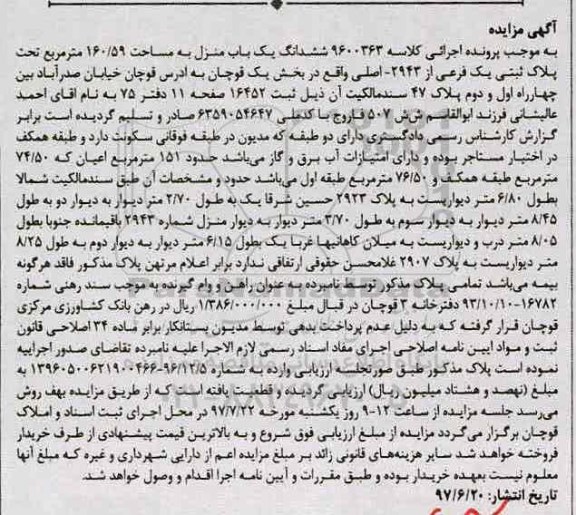 آگهی مزایده
به موجب پرونده اجرائی کلاسه ۹۶۰۰۳۶۳ ششدانگ یک باب منزل به مساحت ۱۶۰/۵۹ مترمربع تحت
پلاک ثبتی یک فرعی از ۲۹۴۳- اصلی واقع در بخش یک قوچان به ادرس قوچان خیابان صدرآباد بین
چهارراه اول و دوم پلاک ۴۷ سندمالکیت آن ذیل ثبت ۱۶۴۵۲ صفحه ۱۱ دفتر ۷۵ به نام اقای احمد
عالیشانی فرزند ابوالقاسم ش‌ش ۵۰۷ فاروج با کدملی ۶۳۵۹۰۵۴۶۴۷ صادر و تسلیم گردیده است برابر
گزارش کارشناس رسمی دادگستری دارای دو طبقه که مدیون در طبقه فوقانی سکونت دارد و طبقه همکف
در اختیار مستاجر بوده و دارای امتیازات آب برق و گاز می‌باشد حدود ۱۵۱ مترمربع اعیان که ۷۴/۵۰
مترمربع طبقه همکف و ۷۶/۵۰ مترمربع طبقه اول می‌باشد حدود و مشخصات آن طبق سندمالکیت شمالا
بطول ۶/۸۰ متر دیواریست به پلاک ۲۹۲۳ حسین شرقا یک به طول ۲/۷۰ متر دیوار به دیوار دو به طول
۸/۴۵ متر دیوار به دیوار سوم به طول ۳/۷۰ متر دیوار به دیوار منزل شماره ۲۹۴۳ باقیمانده جنوبا بطول
۸/۰۵ متر درب و دیواریست به میلان کاهانیها غربا یک بطول ۶/۱۵ متر دیوار به دیوار دوم به طول ۸/۲۵
متر دیواریست به پلاک ۲۹۰۷ غلامحسن حقوقی ارتفاقی ندارد برابر اعلام مرتهن پلاک مذکور فاقد هرگونه
بیمه می‌باشد تمامی پلاک مذکور توسط نامبرده به عنوان راهن و وام گیرنده به موجب سند رهنی شماره
۱۶۷۸۲-۹۳/۱۰/۱۰ دفترخانه ۳ قوچان در قبال مبلغ ۱/۳۸۶/۰۰۰/۰۰۰ ریال در رهن بانک کشاورزی مرکزی
قوچان قرار گرفته که به دلیل عدم پرداخت بدهی توسط مدیون بستانکار برابر ماده ۳۴ اصلاحی قانون
ثبت و مواد ایین نامه اصلاحی اجرای مفاد اسناد رسمی لازم الاجرا علیه نامبرده تقاضای صدور اجراییه
نموده است پلاک مذکور طبق صورتجلسه ارزیابی وارده به شماره ۱۳۹۶۰۵۰۰۶۲۱۹۰۰۴۶۶-۹۶/۱۲/۵ به
مبلغ (نهصد و هشتاد میلیون ریال) ارزیابی گردیده و قطعیت یافته است که از طریق مزایده بهف روش
می‌رسد جلسه مزایده از ساعت ۱۲-۹ روز یکشنبه مورخه ۹۷/۷/۲۲ در محل اجرای ثبت اسناد و املاک
قوچان برگزار می‌گردد مزایده از مبلغ ارزیابی فوق شروع و به بالاترین قیمت پیشنهادی از طرف خریدار
فروخته خواهد شد سایر هزینه‌های قانونی زائد بر مبلغ مزایده اعم از دارایی شهرداری و غیره که مبلغ آنها
معلوم نیست بعهده خریدار بوده و طبق مقررات و آیین نامه اجرا اقدام و وصول خواهد شد.
تاریخ انتشار: ۹۷/۶/۲۰